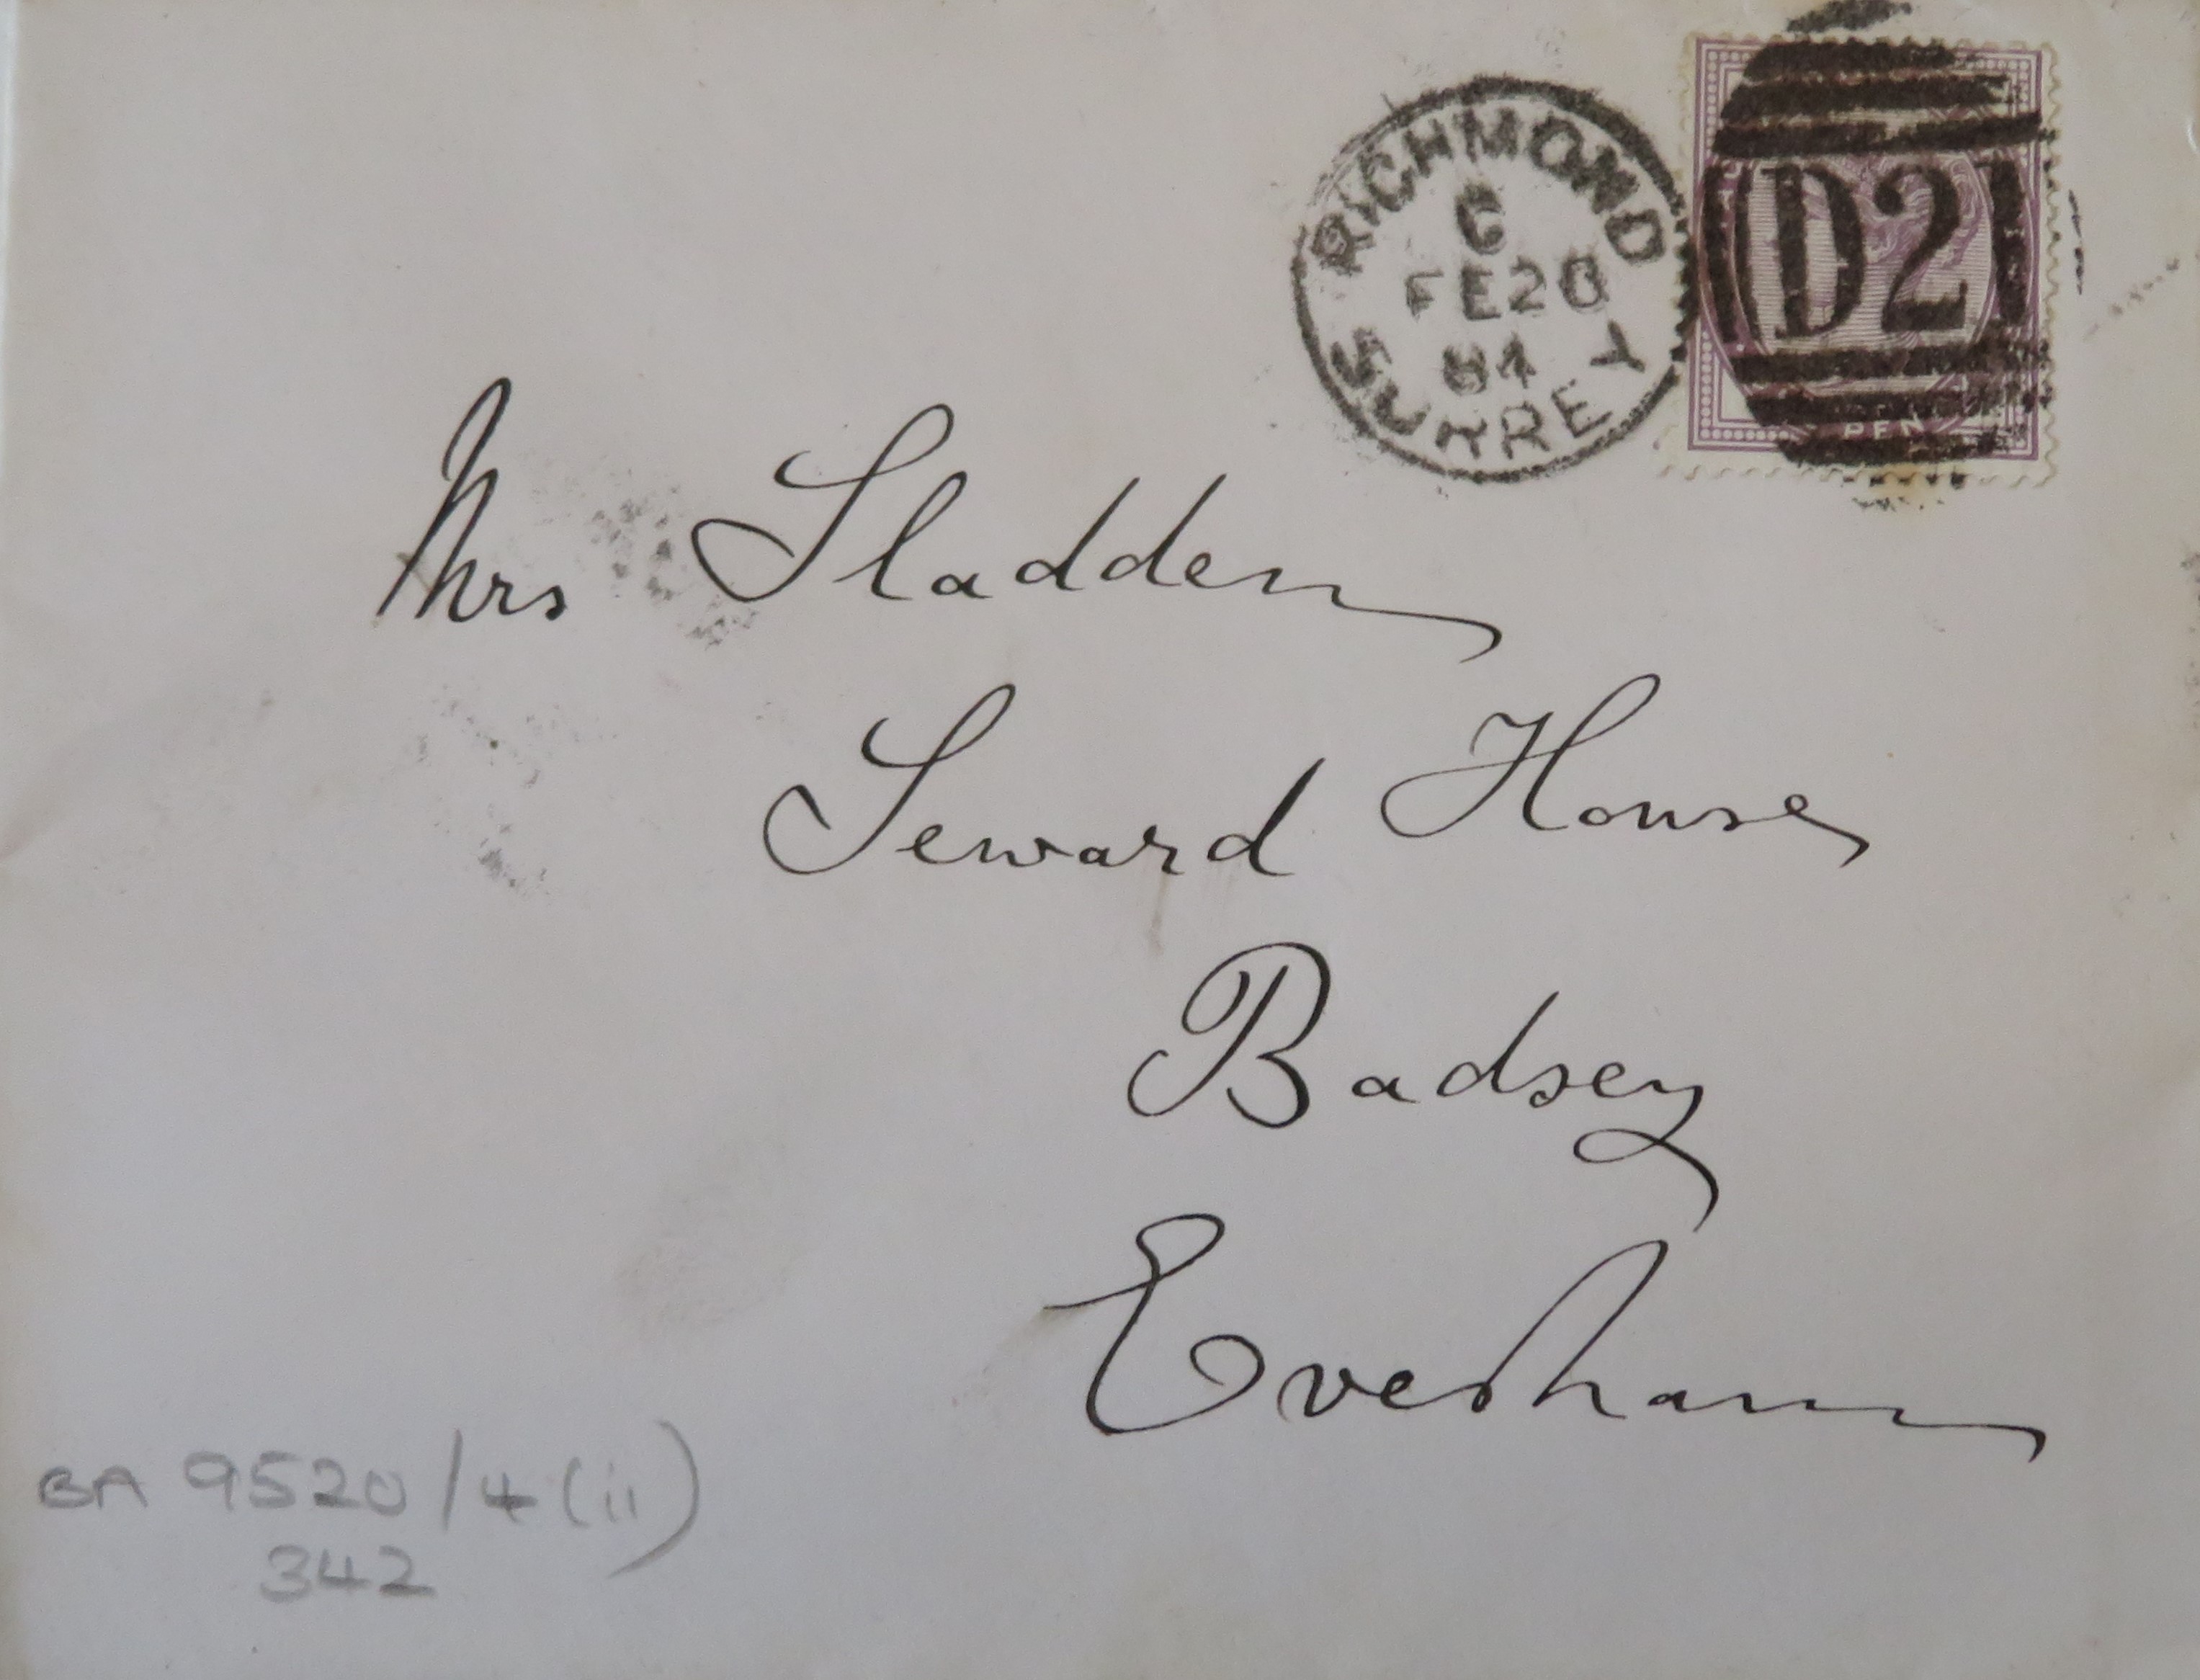 RICHMOND
6
FE 20
84
SURREY
D2
PEN
Mrs Sladden
Seward House
Badsey
Evesham
BA 9520/4(ii)
342